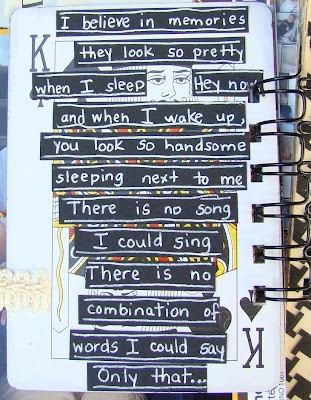 I believe in memories
K
they look so pretty
when I sleep Hey now
and when I wake up,
you look so handsome
sleeping next to me
There is no song
I could sing
There is no
combination of
words I could say
Only that...
K